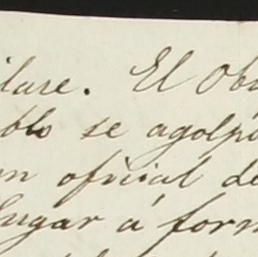 ilare. El Ob
blo se agolp
un oficial de
lugar á form